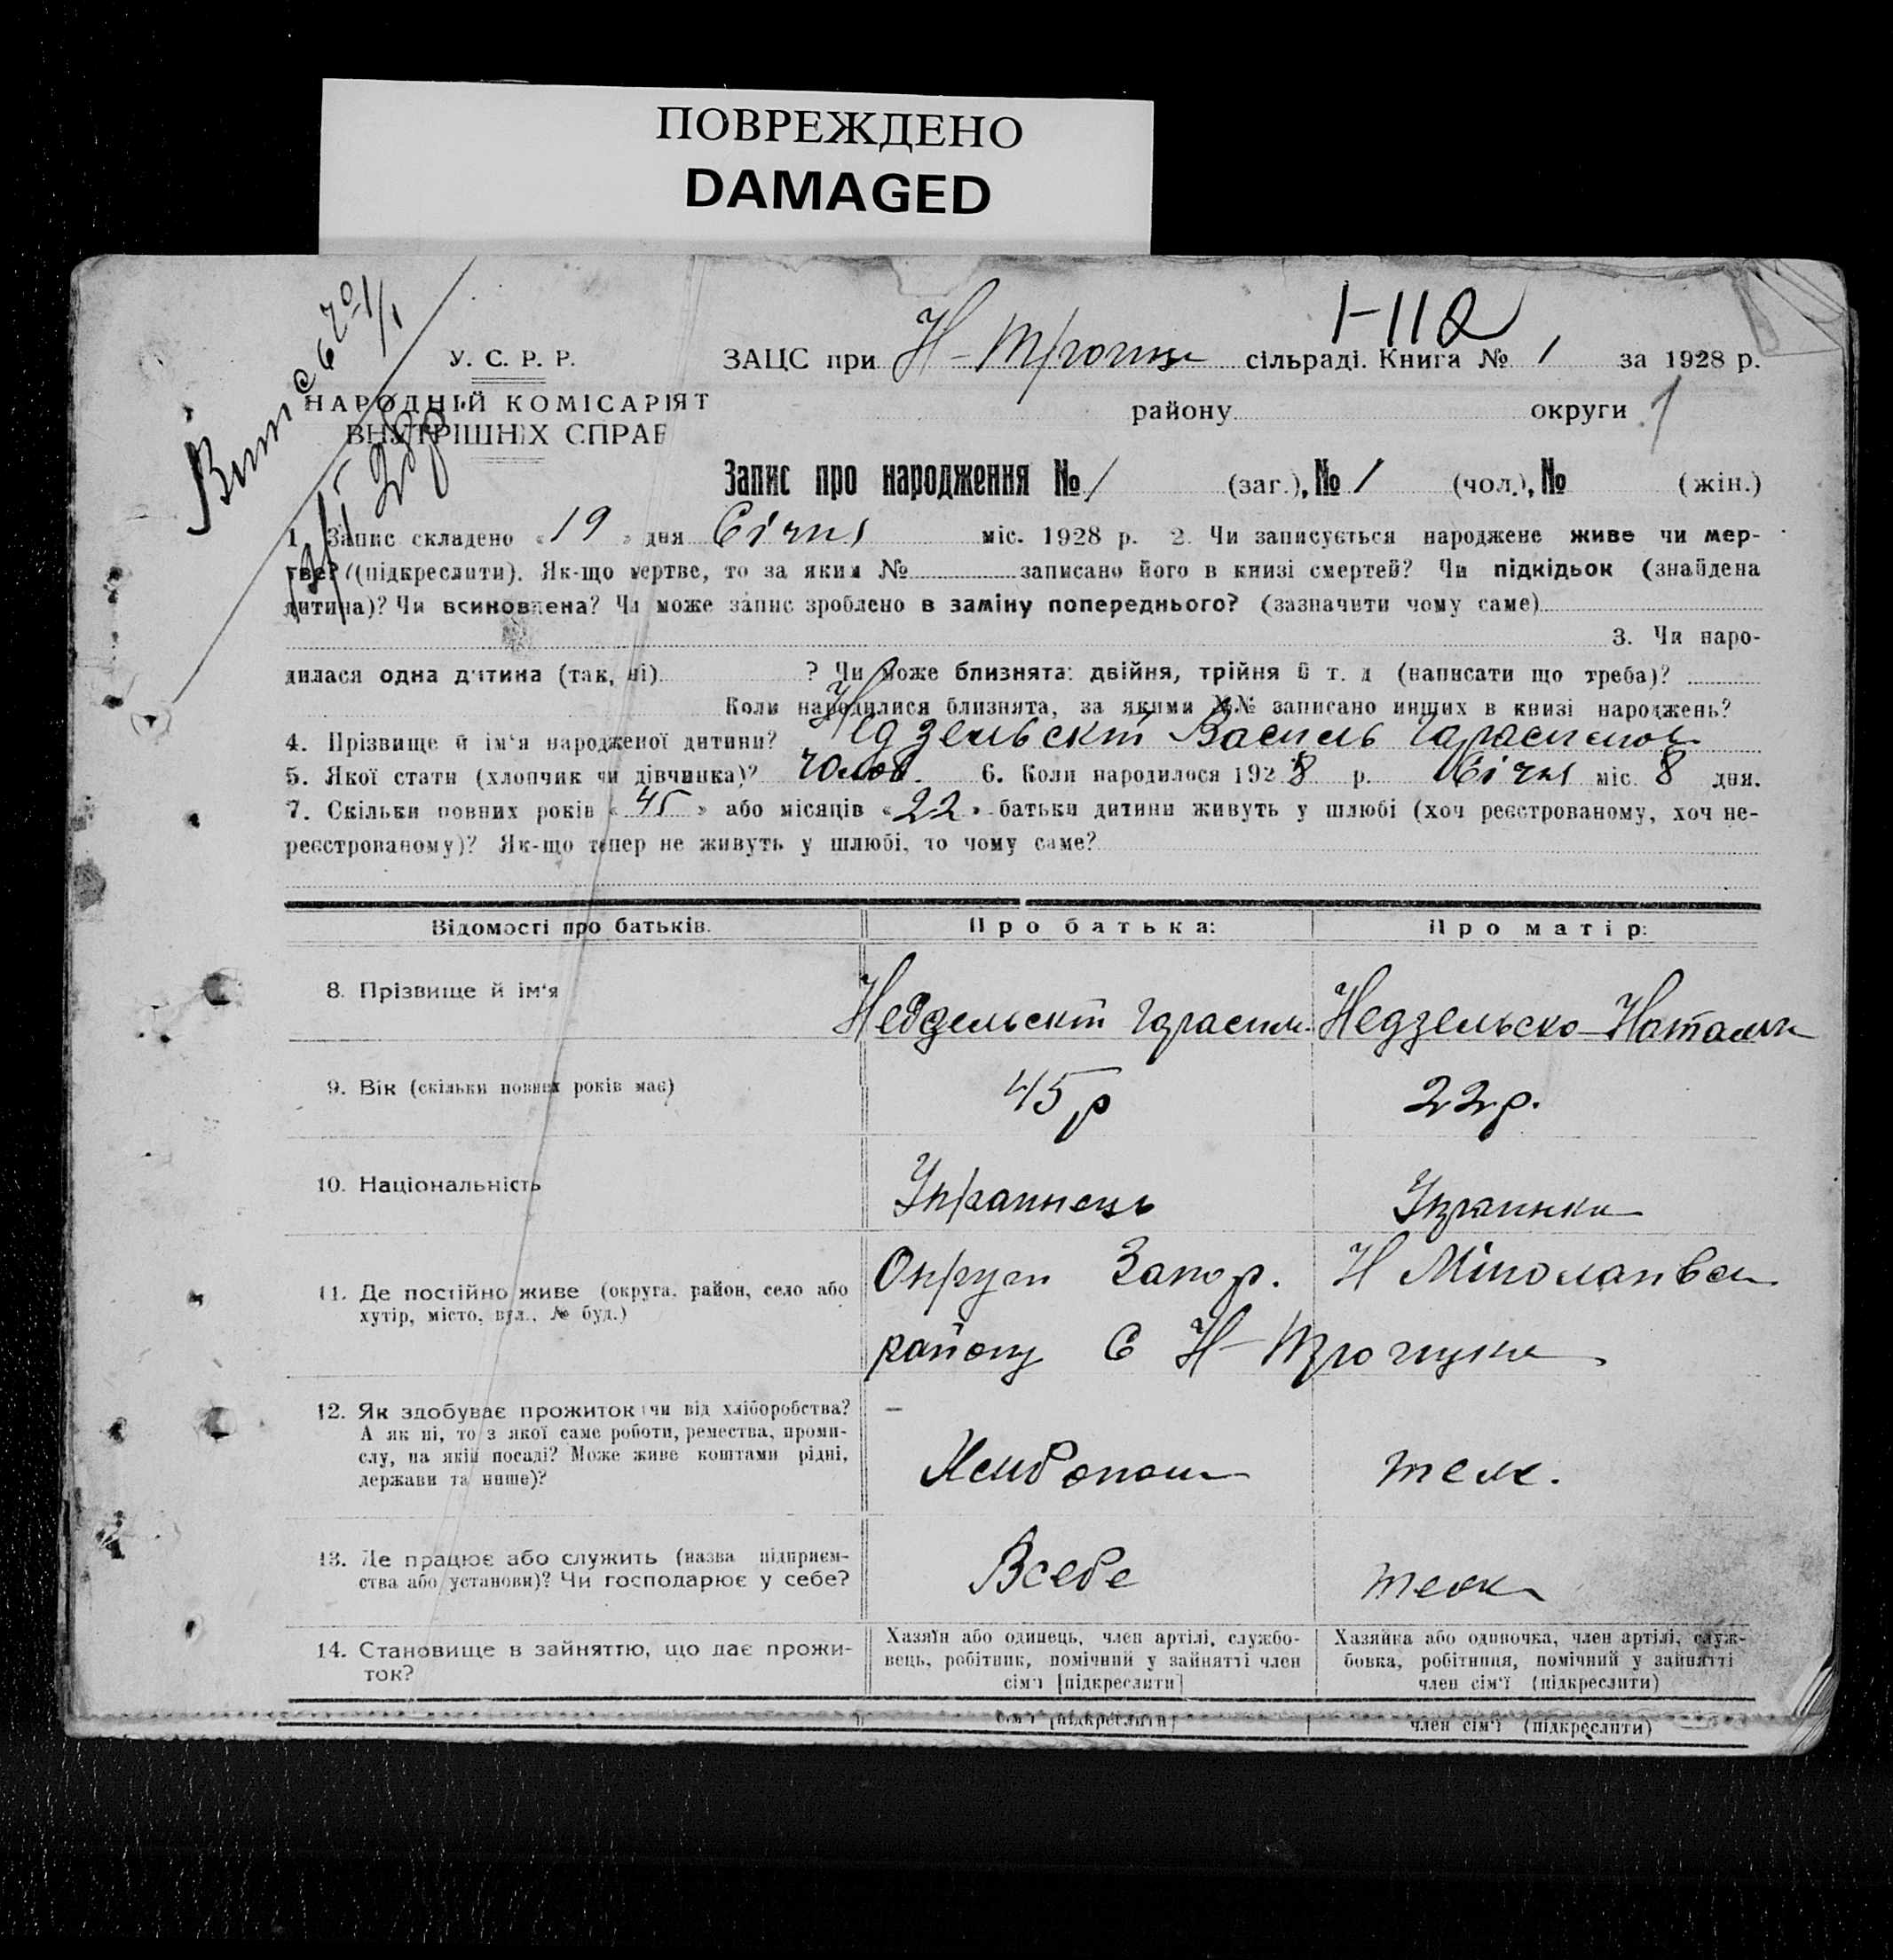 ПОВРЕЖДЕНО
DAMAGED
1-112
У. С. Р. Р.
НАРОДНІЙ КОМІСАРІЯТ
ВНУТРІШНІХ СПРАВ
ЗАЦС при Н-Троицк сільраді. Книга № 1 за 1928 р.
району округи 1
Запис про народження № 1 (заг.), № 1 (чол.), № (жін.)
1. Запис складено « 19 » дня Січня міс. 1928 р. 2. Чи записується народжене живе чи мер-
тве? (підкреслити). Як-що мертве, то за яким № записано його в книзі смертей? Чи підкідьок (знайдена
дитина)? Чи всиновлена? Чи може запис зроблено в заміну попереднього? (зазначити чому саме)
3. Чи наро-
дилася одна дитина (так, ні) ? Чи може близнята: двійня, трійня й т. д (написати що треба)?
Коли народилися близнята, за якими №№ записано инших в книзі народжень?
4. Прізвище й ім'я народженої дитини? Недзельскт Василь
5. Якої стати (хлопчик чи дівчинка)? чолов. 6. Коли народилося 1928 р. Січня міс. 8 дня.
7. Скільки повних років « 45 » або місяців « 22 » батьки дитини живуть у шлюбі (хоч реєстрованому, хоч не-
реєстрованому)? Як-що тепер не живуть у шлюбі, то чому саме?
Відомості про батьків. Про батька: Про матір:
8. Прізвище й ім'я Недзельскт Гарасим Недзельско Наталка
9. Вік (скільки повних років має) 45 р 22 р.
10. Національність Украинець Украинка
11. Де постійно живе (округа, район, село або
хутір, місто, вул., № буд.)
Округи Запор. Н Миколаивск
району С Н-Троицке
12. Як здобуває прожиток (чи від хліборобства?
А як ні, то з якої саме роботи, ремества, проми-
слу, на якій посаді? Може живе коштами рідні,
держави та инше)?
Хлибопаш теж.
13. Де працює або служить (назва підприєм-
ства або установи)? Чи господарює у себе?
Всебе теж
14. Становище в зайняттю, що дає прожи-
ток?
Хазяїн або одинець, член артілі, службо-
вець, робітник, помічний у зайнятті член
сім'ї [підкреслити]
Хазяйка або одиночка, член артілі, служ-
бовка, робітниця, помічний у зайнятті
член сім'ї (підкреслити)
сім'ї [підкреслити] член сім'ї (підкреслити)